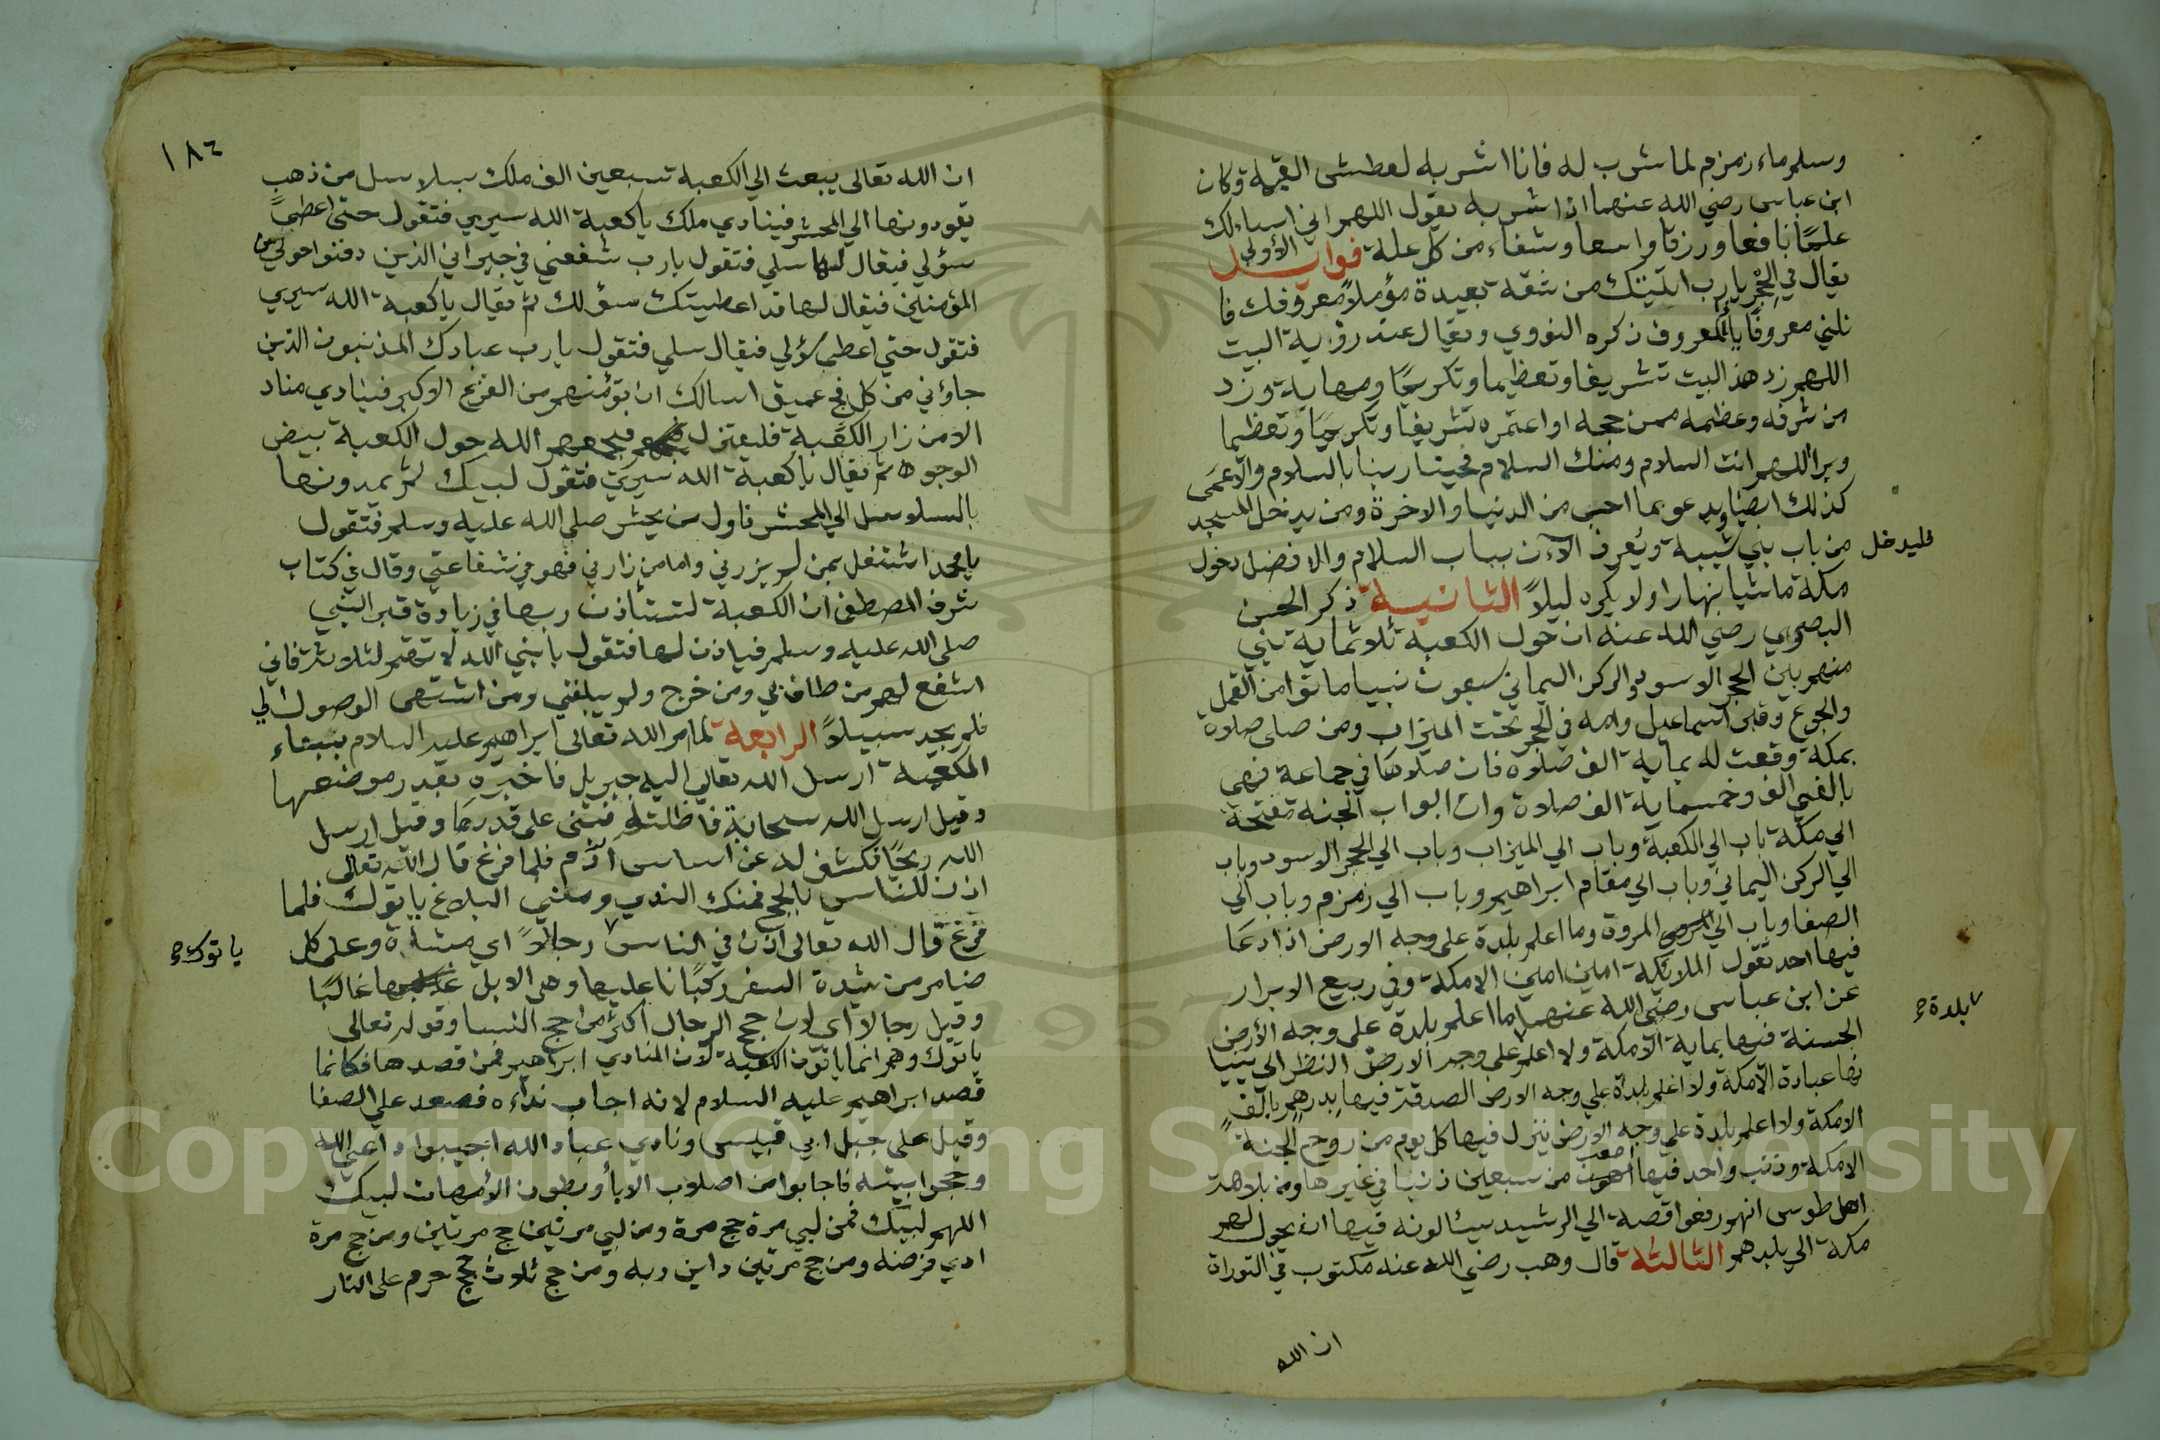 وسلم ماء زمزم لما شرب له فانا اشربه لعطش القيمة وكان
ابن عباس رضي الله عنهما اذا شربه يقول اللهم اني اسالك
علما نافعا ورزقا واسعا وشفاء من كل علة فوايد الأولى
يقال في الحجر يارب اتيتك من شقة بعيدة مؤملا معروفك فا
نلني معروفا يا معروف ذكره النووي ويقال عند رؤية البيت
اللهم زد هذ البيت تشريفا وتعظيما وتكريما ومهابة وزد
من شرفه وعظمه ممن حجه او اعتمره تشريفا وتكريما وتعظيما
وبرا اللهم انت السلام ومنك السلام فحينا ربنا بالسلام والاعمى
كذلك ايضا ويدعو بما احب من الدنيا والاخرة ومن يدخل المسجد
فليدخل
من باب بني شيبة ويعرف الآن بباب السلام والافضل دخول
مكة ماشيا نهارا ولا يكره ليلاً الثانية ذكر الحسن
البصري رضي الله عنه ان حول الكعبة ثلاثماية نبي
منهم بين الحجر الاسود والركن اليماني سبعون نبيا ماتوا من القمل
والجوع وقبر اسماعيل وامه في الحجر تحت الميزاب ومن صلى صلاة
بمكة وقعت له بماية الف صلاة فان صلاها في جماعة فهي
بالفي الف وخمسماية الف صلاة وان ابواب الجنة مفتحة
الي مكة باب الي الكعبة وباب الي الميزاب وباب الي الحجر الاسود وباب
الي الركن اليماني وباب الي مقام ابراهيم وباب الي زمزم وباب الي
الصفا وباب الي المروة وما اعلم بلدة على وجه الارض اذا دعا
فيها احد تقول الملايكة امين امين الامكة وفي ربيع الابرار
عن ابن عباس رضي الله عنهما ما اعلم بلدة على وجه الأرض
بلدة
الحسنة فيها بماية الامكة ولا اعلم على وجه الارض النظر الى بنيا
نها عبادة الامكة ولا اعلم بلدة علي وجه الارض الصدقة فيها بدرهم بالف
الامكة ولا اعلم بلدة علي وجه الارض ينزل فيها كل يوم من روح الجنة
الامكة وذنب واحد فيها اصعب من سبعين ذنبا في غيرها ومن بلاهة
اهل طوس انهم رفعوا قصة الي الرشيد يسئالونه فيها ان يحول لهم
مكة الي بلدهم الثالثة قال وهب رضي الله عنه مكتوب في التوراة
ان الله
١٨٦
ان الله تعالى يبعث الي الكعبة سبعين الف ملك بسلاسل من ذهب
يقودونها الي المحشر فينادي ملك ياكعبة الله سيري فتقول حتى اعطى
سؤلي فيقال لها سلي فتقول يارب شفعني في جيراني الذين دفنوا حولي من
المؤمنين فيقال لها قد اعطيتك سؤلك ثم يقال ياكعبة الله سيري
فتقول حتي اعطى سؤلي فيقال سلي فتقول يارب عبادك المذنبون الذين
جاؤني من كل فج عميق اسالك ان تؤمنهم من الفزع الاكبر فينادي مناد
الا من زار الكعبة فليعتزل فيجمعهم الله حول الكعبة بيض
الوجوه ثم يقال ياكعبة الله سيري فتقول لبيك ثم يمدونها
بالسلاسل الي المحشر فاول من يحشر صلى الله عليه وسلم فتقول
يامحمد اشتغل بمن لم يزرني واما من زارني فهو في شفاعتي وقال في كتاب
شرف المصطفى ان الكعبة لتستأذن ربها في زيارة قبر النبي
صلى الله عليه وسلم فياذن لها فتقول يانبي الله لا تهتم لثلاثة فاني
اشفع لهم من طاف بي ومن خرج ولم يبلغني ومن اشتهى الوصول الي
فلم يجد سبيلاً الرابعة لما امر الله تعالى ابراهيم عليه السلام ببناء
الكعبة ارسل الله تعالى اليه جبريل فاخبره بقدر موضعها
وقيل ارسل الله سحابة فاظلته فبنى على قدرها وقيل ارسل
الله ريحا فكشف له عن اساس آدم فلما فرغ قال الله تعالى
اذن للناس بالحج فمنك الندي ومني البلاغ ياتوك فلما
فرغ قال الله تعالى اذن في الناس رجالاً اي مشاة وعلى كل
ياتوك
ضامر من شدة السفر ركبانا عليها وهي الابل غالبا
وقيل رجالا اي لان حج الرجال اكثر من حج النسا وقوله تعالى
ياتوك وهم انما ياتون الكعبة لان المنادي ابراهيم فمن قصدها فكانما
قصد ابراهيم عليه السلام لانه اجاب نداءه فصعد علي الصفا
وقيل على جبل ابي قبيس ونادي عباد الله اجيبوا داعي الله
وحجوا بيته فاجابوا من اصلاب الابا وبطون الأمهات لبيك
اللهم لبيك فمن لبي مرة حج مرة ومن لبي مرتين حج مرتين ومن حج مرة
ادي فرضه ومن حج مرتين داين ربه ومن حج ثلاث حجج حرم على النار
Copyright © King Saud University
1957